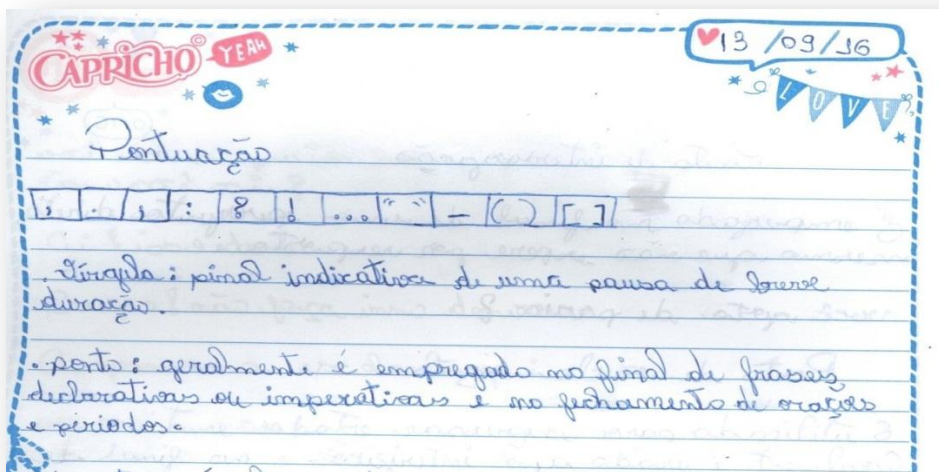 CAPRICHO YEAH
13/09/16
LOVE
Pontuação
, . ; : ? ! ... " " — ( ) [ ]
, Vírgula: sinal indicativo de uma pausa de breve
duração.
. ponto: geralmente é empregado no final de frases
declarativas ou imperativas e no fechamento de orações
e períodos.